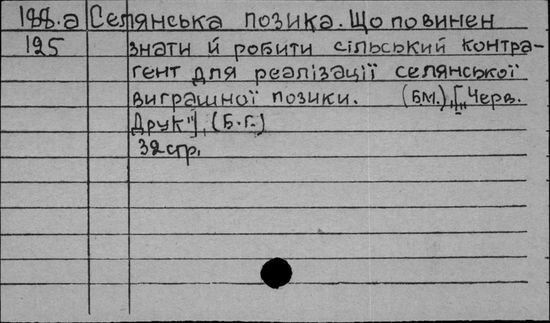 188.а Селянська позика. Що повинен
125 знати й робити сільський контра-
гент для реалізації селянської
виграшної позики. (Б.М.), [„Черв.
Друк"], (Б.Г.)
32 стр.